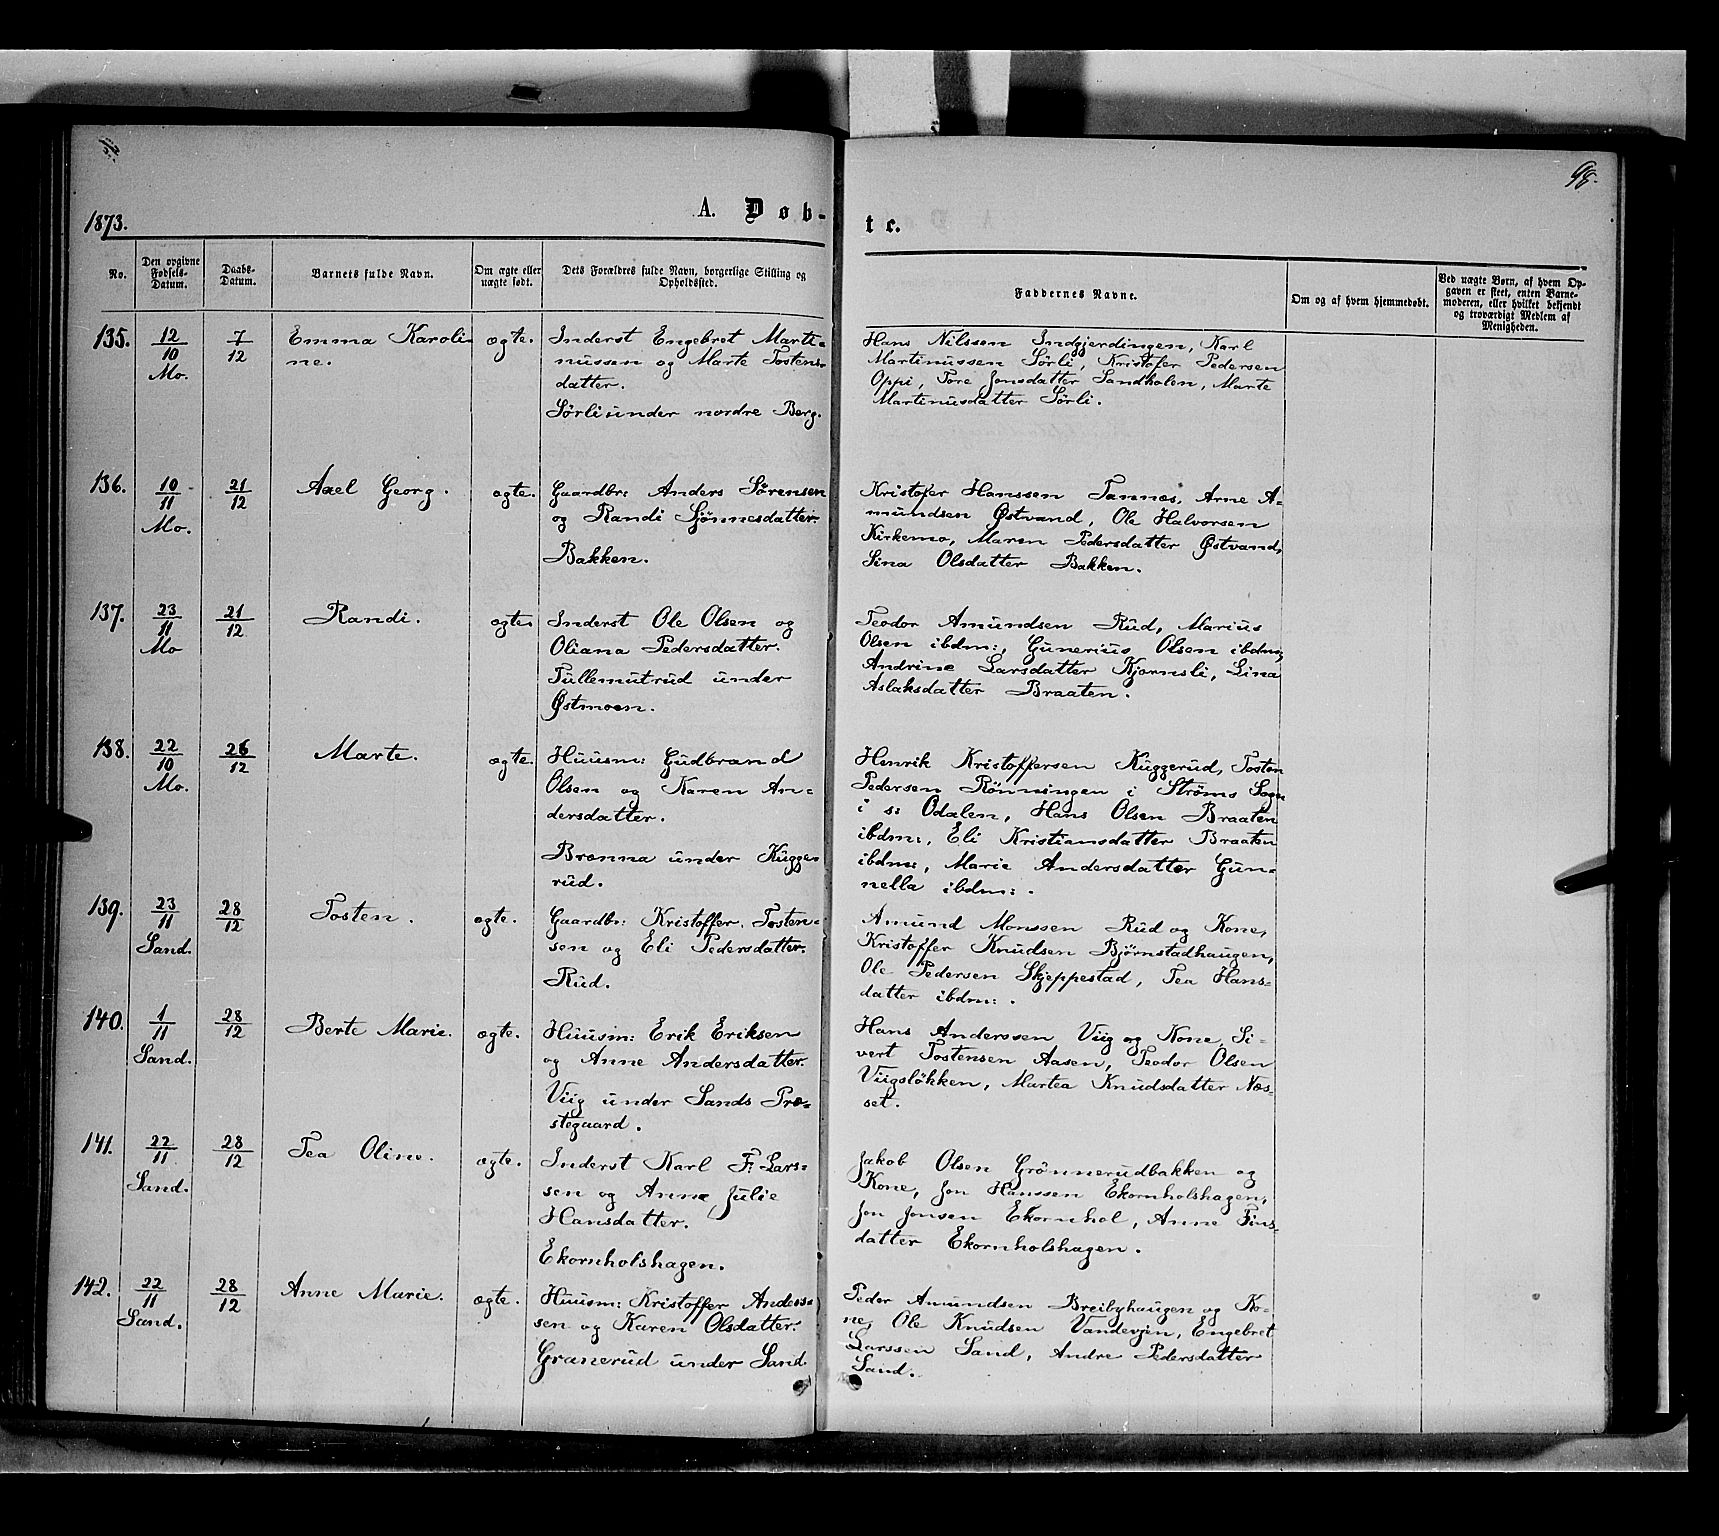 98.
1873.
A. Døb-
te.
No.
Den opgivne Fødsels-Datum.
Daabs-Datum.
Barnets fulde Navn.
Om ægte eller uægte født.
Dets Forældres fulde Navn, borgerlige Stilling og Opholdssted.
Faddernes Navne.
Om og af hvem hjemmedøbt.
Ved uægte Børn, af hvem Op-
gaven er skeet, enten Barne-
moderen, eller hvilket bekjendt
og troværdigt Medlem af
Menigheden.
135.
12/10
Mo.
7/12
Emma Karoli-
ne.
ægte.
Inderst Engebret Marti-
nussen og Marte Tostens-
datter.
Sørli under nordre Berg.
Hans Nilssen Indgjerdingen, Karl
Martinussen Sørli, Kristofer Pedersen
Oppi, Tore Jonsdatter Sandholen, Marte
Martinusdatter Sørli.
136.
10/11
Mo.
21/12
Axel Georg.
ægte.
Gaardbr: Anders Sørensen
og Randi Sjønnesdatter.
Bakken.
Kristofer Hanssen Tannæs, Arne A-
mundsen Østvand, Ole Halvorsen
Kirkemo, Maren Pedersdatter Østvand,
Sina Olsdatter Bakken.
137.
23/11
Mo
21/12
Randi.
ægte.
Inderst Ole Olsen og
Oliana Pedersdatter.
Tullemutrud under
Østmoen.
Teodor Amundsen Rud, Marius
Olsen ibdm:, Gunerius Olsen ibdm,
Andrine Larsdatter Kjørnsli, Lina
Aslaksdatter Braaten.
138.
22/10
Mo.
26/12
Marte.
ægte.
Huusm: Gudbrand
Olsen og Karen An-
dersdatter.
Brænna under Kugge-
rud.
Henrik Kristoffersen Kuggerud, Tosten
Pedersen Rönningen i Strøms Sogn
i s: Odalen, Hans Olsen Braaten
ibdm:, Eli Kristiansdatter Braaten
ibdm:, Marie Andersdatter Gun-
nella ibdm:.
139.
23/11
Sand.
28/12
Tosten.
ægte.
Gaardbr: Kristoffer Tosten-
sen og Eli Pedersdatter.
Rud.
Amund Monssen Rud og Kone,
Kristoffer Knudsen Bjørnstadhaugen,
Ole Pedersen Skjeppestad, Tea Hans-
datter ibdm:.
140.
1/11
Sand.
28/12
Berte Marie.
ægte.
Huusm: Erik Eriksen
og Anne Andersdatter.
Viig under Sands Præ-
stegaard.
Hans Anderssen Viig og Kone, Si-
vert Tostensen Aasen, Teodor Olsen
Viigsløkken, Martea Knudsdatter Næs-
set.
141.
22/11
Sand.
28/12
Tea Oline.
ægte.
Inderst Karl F: Lars-
sen og Anne Julie
Hansdatter.
Ekornholshagen.
Jakob Olsen Grønnerudbakken og
Kone, Jon Hanssen Ekornholshagen,
Jon Jonsen Ekornhol, Anne Fins-
datter Ekornholshagen.
142.
22/11
Sand.
28/12
Anne Marie.
ægte.
Huusm: Kristoffer Anders-
sen og Karen Olsdatter.
Granerud under Sand.
Peder Amundsen Breibyhaugen og Ko-
ne, Ole Knudsen Vandevjen, Engebret
Larssen Sand, Andre Pedersdatter
Sand.